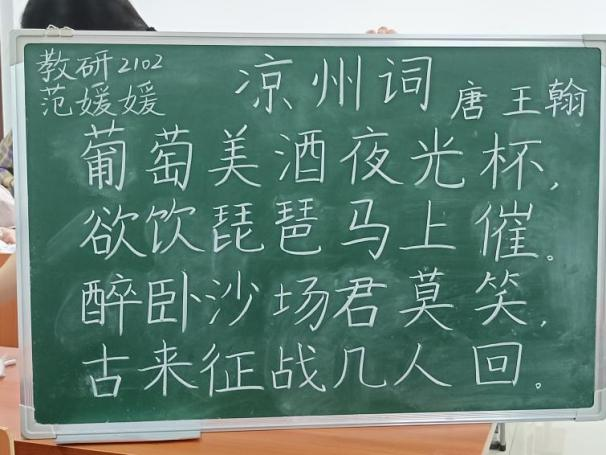 教研2102
范媛媛
凉州词
唐 王翰
葡萄美酒夜光杯,
欲饮琵琶马上催。
醉卧沙场君莫笑,
古来征战几人回。